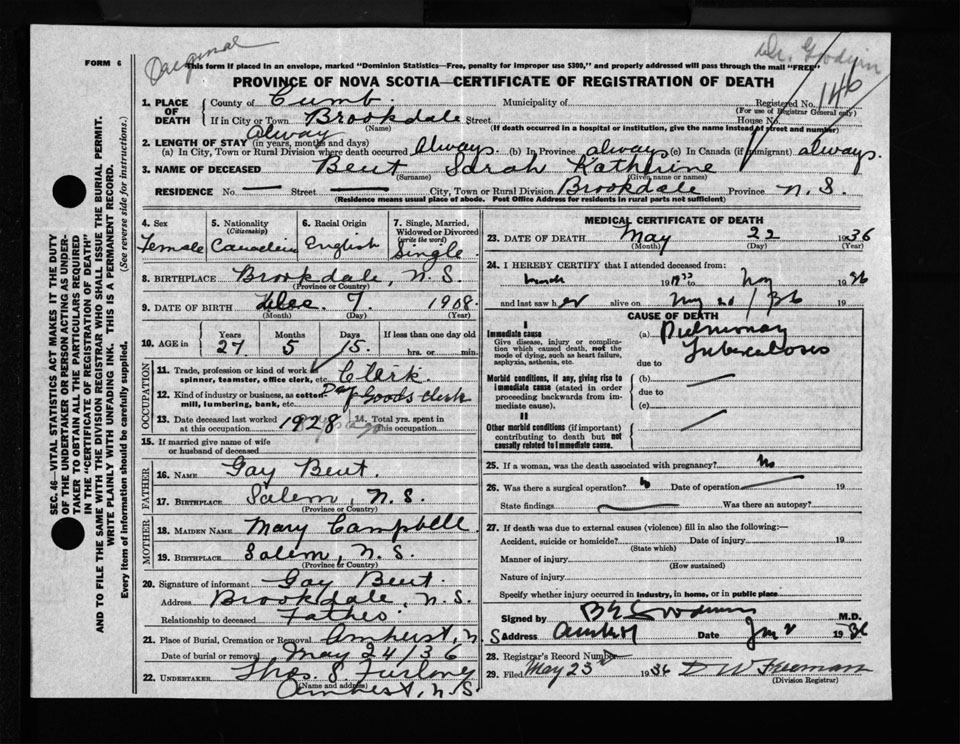 Original
Dr. Goodwin
FORM 6
This form if placed in an envelope, marked "Dominion Statistics—Free, penalty for improper use $300," and properly addressed will pass through the mail "FREE"
PROVINCE OF NOVA SCOTIA—CERTIFICATE OF REGISTRATION OF DEATH
146
SEC. 46—VITAL STATISTICS ACT MAKES IT THE DUTY
OF THE UNDERTAKER OR PERSON ACTING AS UNDER-
TAKER TO OBTAIN ALL THE PARTICULARS REQUIRED
IN THE "CERTIFICATE OF REGISTRATION OF DEATH"
AND TO FILE THE SAME WITH THE DIVISION REGISTRAR WHO SHALL ISSUE THE BURIAL PERMIT.
WRITE PLAINLY WITH UNFADING INK. THIS IS A PERMANENT RECORD.
Every item of information should be carefully supplied. (See reverse side for instructions.)
1. PLACE OF DEATH
County of Cumb. Municipality of Registered No.
(For use of Registrar General only)
If in City or Town Brookdale Street House No.
(Name) (If death occurred in a hospital or institution, give the name instead of street and number)
2. LENGTH OF STAY (in years, months and days)
Alway
(a) In City, Town or Rural Division where death occurred Always. (b) In Province always (c) In Canada (if immigrant) always.
3. NAME OF DECEASED Bent Sarah Kathrine
(Surname) (Given name or names)
RESIDENCE No. — Street — City, Town or Rural Division Brookdale Province N. S.
(Residence means usual place of abode. Post Office Address for residents in rural parts not sufficient)
4. Sex
Female
5. Nationality
(Citizenship)
Canadian
6. Racial Origin
English
7. Single, Married,
Widowed or Divorced
(write the word)
Single.
8. BIRTHPLACE Brookdale, N. S.
(Province or Country)
9. DATE OF BIRTH Dec. 7. 1908.
(Month) (Day) (Year)
10. AGE in
Years Months Days If less than one day old
27 5 15. hrs. or min.
OCCUPATION
11. Trade, profession or kind of work as
spinner, teamster, office clerk, etc. Clerk.
12. Kind of industry or business, as cotton
mill, lumbering, bank, etc. Dry Goods clerk
13. Date deceased last worked
at this occupation 1928
14. Total yrs. spent in
this occupation
15. If married give name of wife
or husband of deceased
FATHER
16. NAME Gay Bent.
17. BIRTHPLACE Salem, N. S.
(Province or Country)
MOTHER
18. MAIDEN NAME Mary Campbell
19. BIRTHPLACE Salem, N. S.
(Province or Country)
20. Signature of informant Gay Bent.
Address Brookdale, N. S.
Relationship to deceased Father
21. Place of Burial, Cremation or Removal Amherst, N. S
Date of burial or removal May 24/36
22. UNDERTAKER Thos. S. Furlong
(Name and address)
Amherst, N. S.
MEDICAL CERTIFICATE OF DEATH
23. DATE OF DEATH May 22 1936
(Month) (Day) (Year)
24. I HEREBY CERTIFY that I attended deceased from:
1933 to May 1936
and last saw her alive on May 20/36
CAUSE OF DEATH
I
Immediate cause
Give disease, injury or complica-
tion which caused death, not the
mode of dying, such as heart failure,
asphyxia, asthenia, etc.
(a) Pulmonary
Tuberculosis
due to
Morbid conditions, if any, giving rise to
immediate cause (stated in order
proceeding backwards from im-
mediate cause).
(b)
due to
(c)
II
Other morbid conditions (if important)
contributing to death but not
causally related to immediate cause.
25. If a woman, was the death associated with pregnancy? No
26. Was there a surgical operation? No Date of operation 19
State findings Was there an autopsy?
27. If death was due to external causes (violence) fill in also the following:—
Accident, suicide or homicide? Date of injury 19
(State which)
Manner of injury
(How sustained)
Nature of injury
Specify whether injury occurred in Industry, in home, or in public place
Signed by Goodwin M.D.
Address Amherst Date 1936
28. Registrar's Record Number
29. Filed May 23 1936 D W Freeman
(Division Registrar)